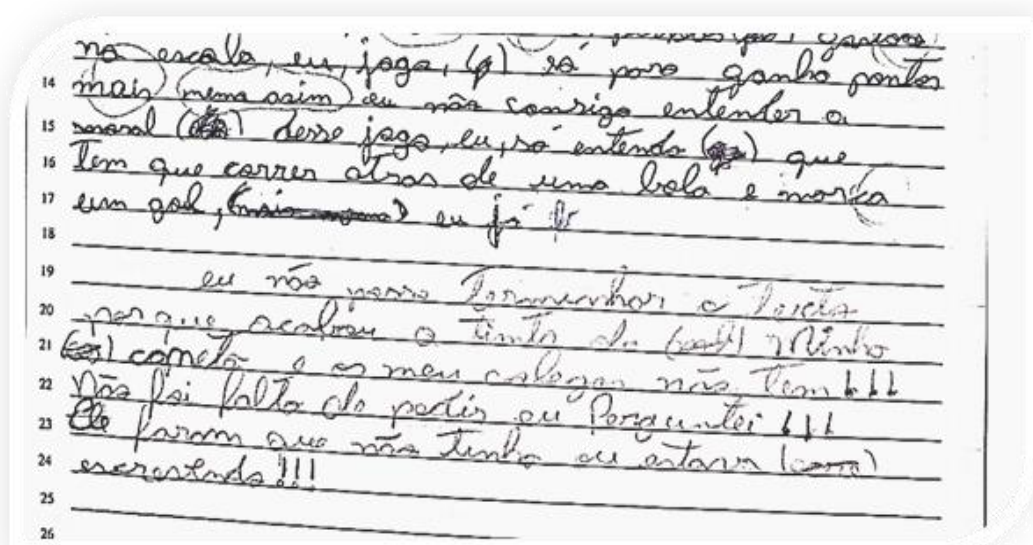 na escala, eu, jogo, (p) só para ganha pontos
14 mais (mema asim) eu não consigo entender a
15 moral desse jogo, eu, só entendo que
16 tem que correr atras de uma bola e marca
17 um gol, (mais mema) eu já
18
19 eu não posso Terminhar o Texto
20 por que acabou a tinta da Minha
21 caneta e os meu colegas não Tem !!!
22 Não foi falta de pedir eu Perguntei !!!
23 Ele que não tinha eu estava
24 escrevendo !!!
25
26